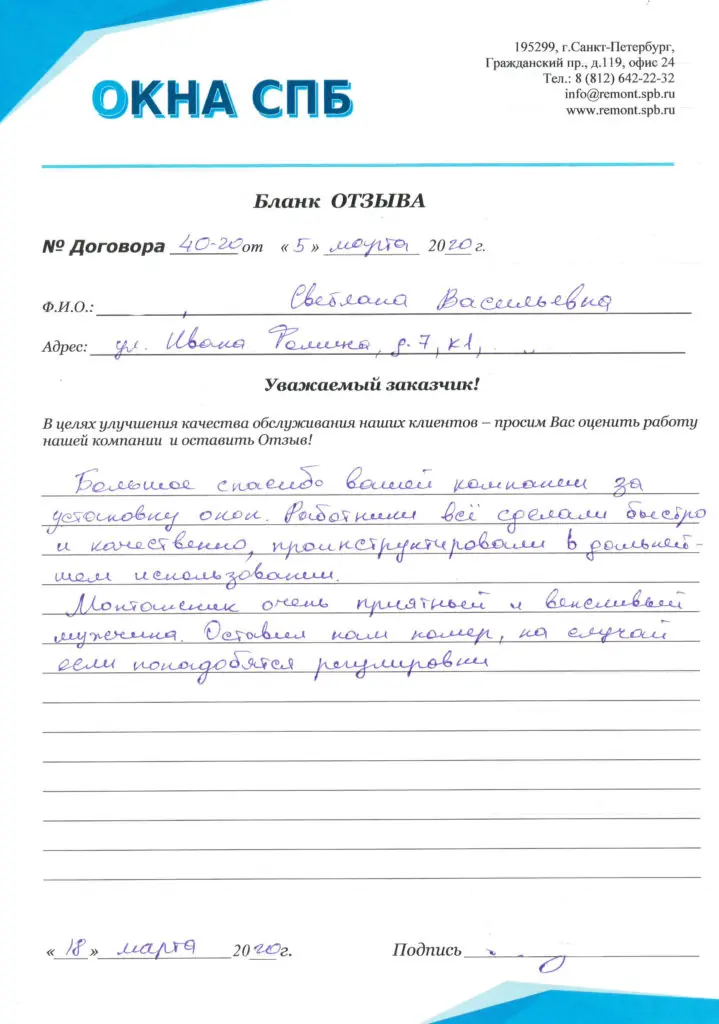 ОКНА СПБ
195299, г.Санкт-Петербург,
Гражданский пр., д.119, офис 24
Тел.: 8 (812) 642-22-32
info@remont.spb.ru
www.remont.spb.ru
Бланк ОТЗЫВА
№ Договора 40-20 от «5» марта 2020 г.
Ф.И.О.: , Светлана Васильевна
Адрес: ул. Ивана Фомина, д.7, к1,
Уважаемый заказчик!
В целях улучшения качества обслуживания наших клиентов – просим Вас оценить работу
нашей компании и оставить Отзыв!
Большое спасибо вашей компании за
установку окон. Работники всё сделали быстро
и качественно, проинструктировали в дальней-
шем использовании.
Монтажник очень приятный и вежливый
мужчина. Оставил нам номер, на случай
если понадобятся регулировки
«18» марта 2020г. Подпись